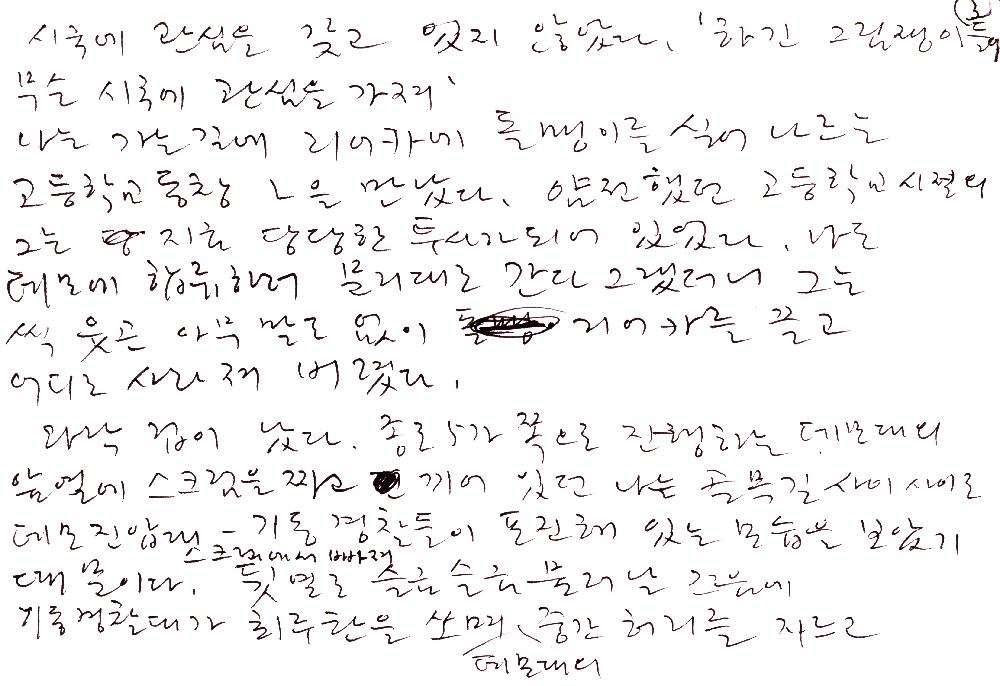 시국에 관심을 갖고 있지 않았다. '하긴 그림쟁이들이
무슨 시국에 관심을 가지리'
나는 가는 길에 리어카에 돌멩이를 실어 나르는
고등학교 동창 ㄴ을 만났다. 얌전했던 고등학교 시절의
그는 지금 당당한 투사가 되어 있었다. 나도
데모에 합류하러 문리대로 간다 그랬더니 그는
씩 웃곤 아무 말도 없이 리어카를 끌고
어디로 사라져 버렸다.
와락 겁이 났다. 종로 5가 쪽으로 진행하는 데모대의
앞열에 스크럼을 짜고 끼어 있던 나는 골목길 사이사이로
데모진압대 - 기동경찰들이 포진해 있는 모습을 보았기
스크럼에서 빠져
때문이다. 뒷열로 슬금슬금 물러날 즈음에
기동경찰대가 최루탄을 쏘며 중간 허리를 자르고
데모대의